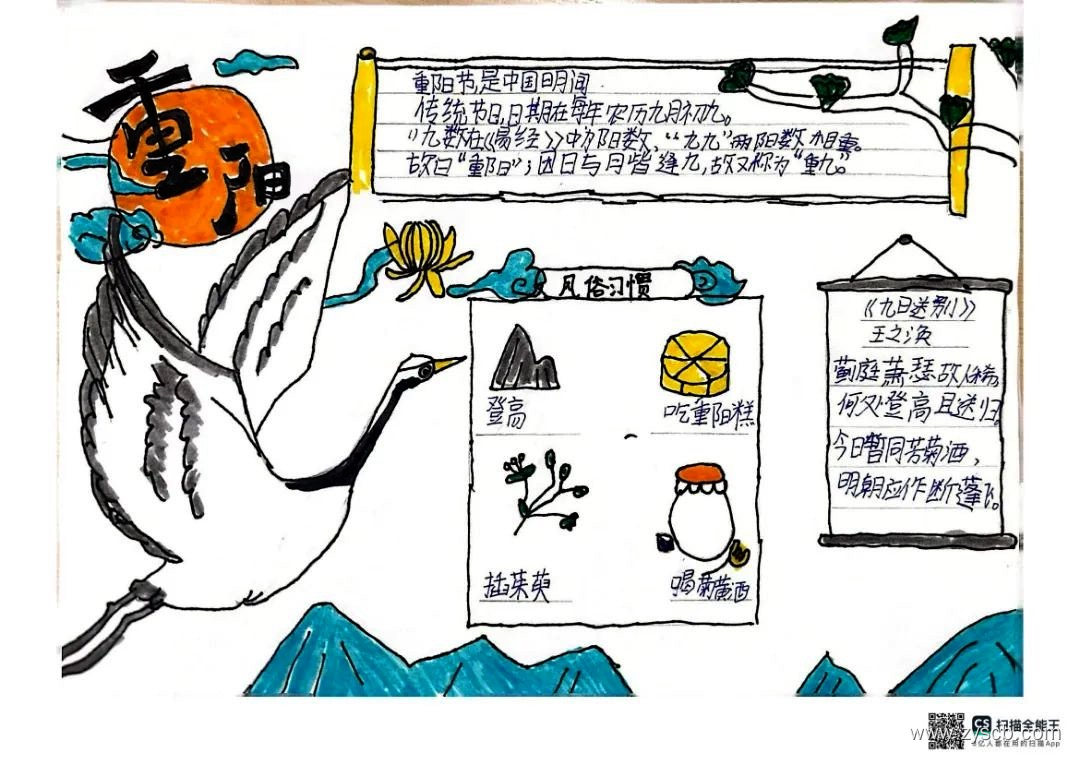 重阳
重阳节是中国民间
传统节日,日期在每年农历九月初九。
"九数在《易经》中为阳数,"九九"两阳数相重。
故曰"重阳";因日与月皆逢九,故又称为"重九"。
风俗习惯
登高
吃重阳糕
插茱萸
喝菊黄酒
《九日送别》
王之涣
蓟庭萧瑟故人稀,
何处登高且送归。
今日暂同芳菊酒,
明朝应作断蓬飞。
CS 扫描全能王
www.zyscb.com
亿人都在用的扫描App